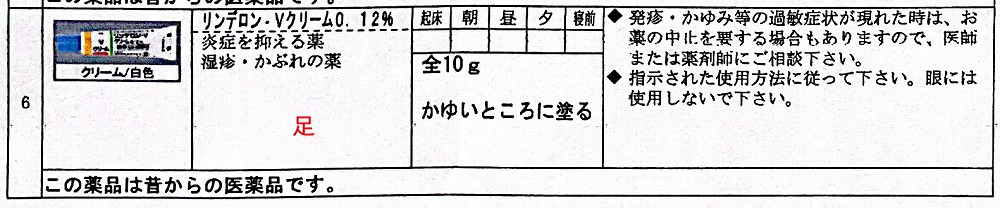 この薬品は昔からの医薬品です。
6
クリーム/白色
リンデロン-Vクリーム0.12%
炎症を抑える薬
湿疹・かぶれの薬
足
起床 朝 昼 夕 寝前
全10g
かゆいところに塗る
◆ 発疹・かゆみ等の過敏症状が現れた時は、お
薬の中止を要する場合もありますので、医師
または薬剤師にご相談下さい。
◆ 指示された使用方法に従って下さい。眼には
使用しないで下さい。
この薬品は昔からの医薬品です。